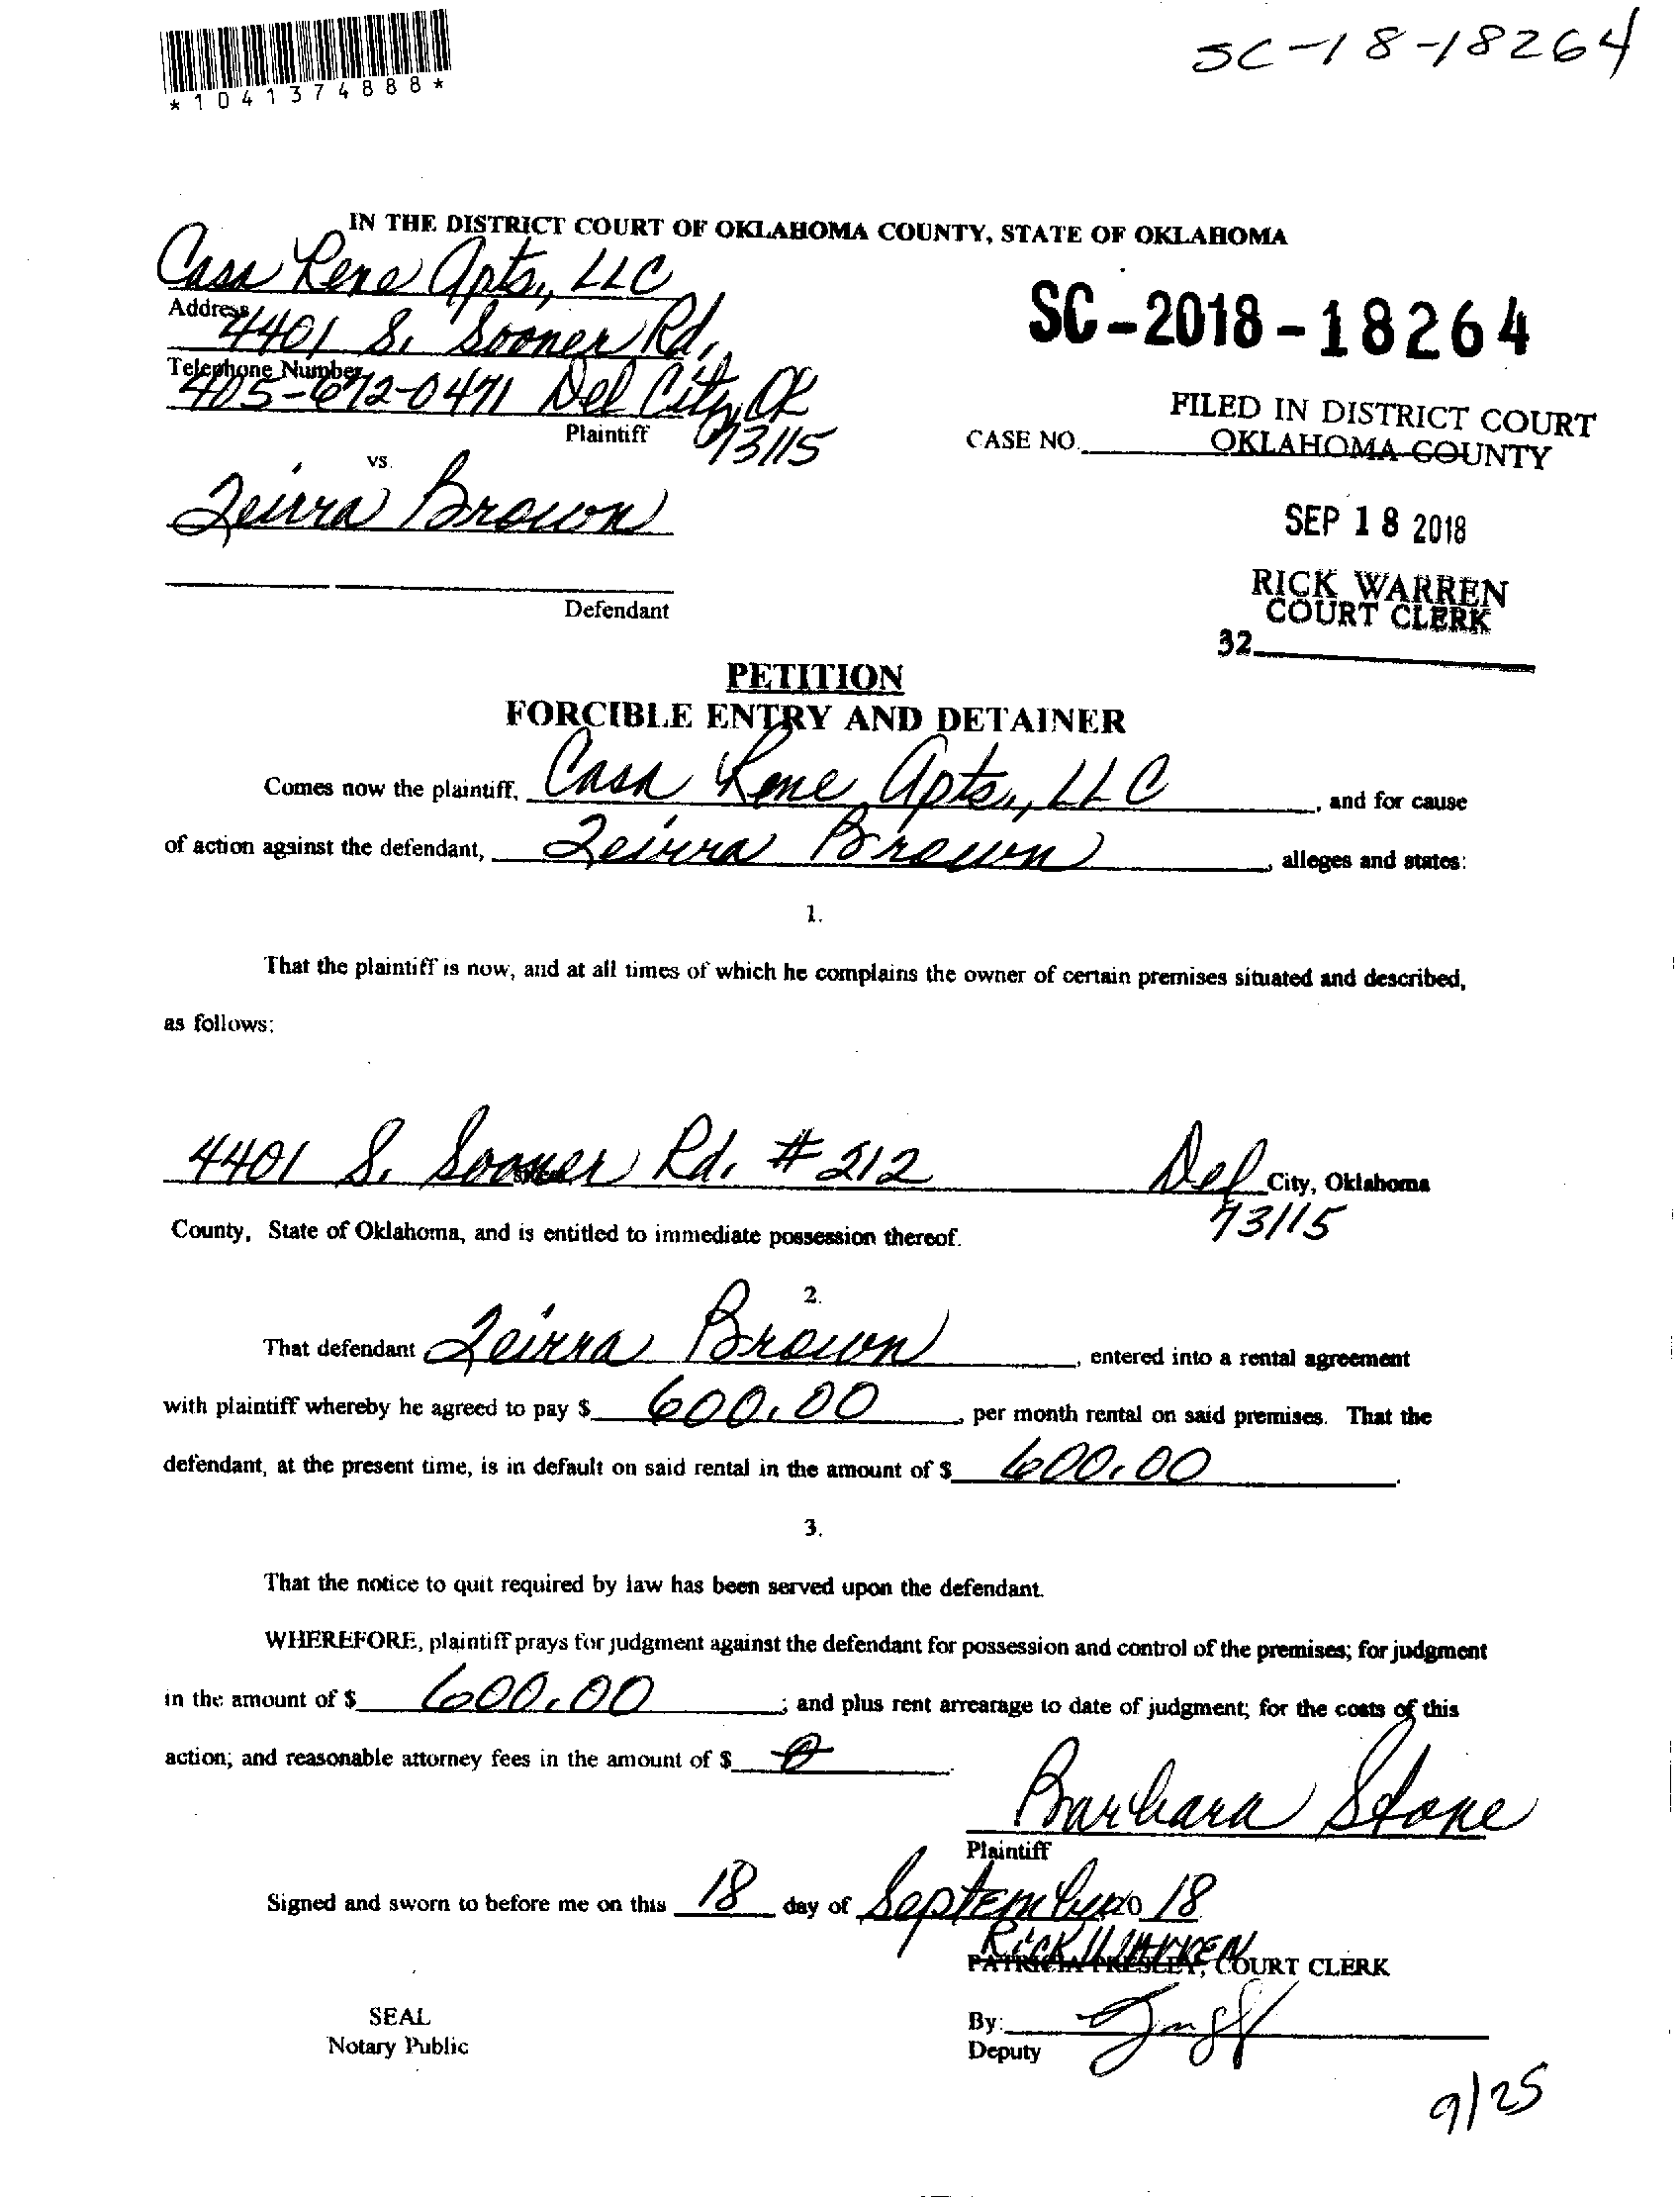 *1041374888*
SC-18-18264
IN THE DISTRICT COURT OF OKLAHOMA COUNTY, STATE OF OKLAHOMA
Casa Rene Apts., LLC
Address
4401 S. Sooner Rd.
SC-2018-18264
Telephone Number
405-672-0471 Del City, OK
73115
Plaintiff
FILED IN DISTRICT COURT
OKLAHOMA COUNTY
CASE NO.
vs.
Brown
SEP 18 2018
RICK WARREN
COURT CLERK
32
Defendant
PETITION
FORCIBLE ENTRY AND DETAINER
Comes now the plaintiff, Casa Rene Apts., LLC, and for cause
of action against the defendant, Brown, alleges and states:
1.
That the plaintiff is now, and at all times of which he complains the owner of certain premises situated and described,
as follows:
4401 S. Sooner Rd. #212 Del City, Oklahoma
73115
County, State of Oklahoma, and is entitled to immediate possession thereof.
2.
That defendant Brown, entered into a rental agreement
with plaintiff whereby he agreed to pay $ 600.00, per month rental on said premises. That the
defendant, at the present time, is in default on said rental in the amount of $ 600.00.
3.
That the notice to quit required by law has been served upon the defendant.
WHEREFORE, plaintiff prays for judgment against the defendant for possession and control of the premises; for judgment
in the amount of $ 600.00; and plus rent arrearage to date of judgment; for the costs of this
action; and reasonable attorney fees in the amount of $ 0.
Barbara Stone
Plaintiff
Signed and sworn to before me on this 18 day of September 20 18
Rick WARREN
PATRICIA PRESLEY, COURT CLERK
SEAL
Notary Public
By:
Deputy
9/25